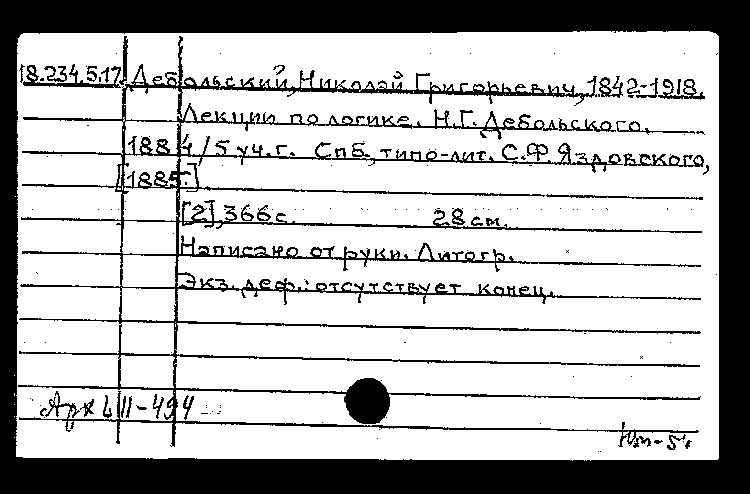 18.234.5.17. Дебольский, Николай Григорьевич, 1842-1918.
Лекции по логике. Н.Г. Дебольского.
1884/5 уч.г. Спб., типо-лит. С.Ф. Яздовского,
[1885.]
[2], 366 с. 28 см.
Написано от руки. Литогр.
Экз. деф.: отсутствует конец.
II-494